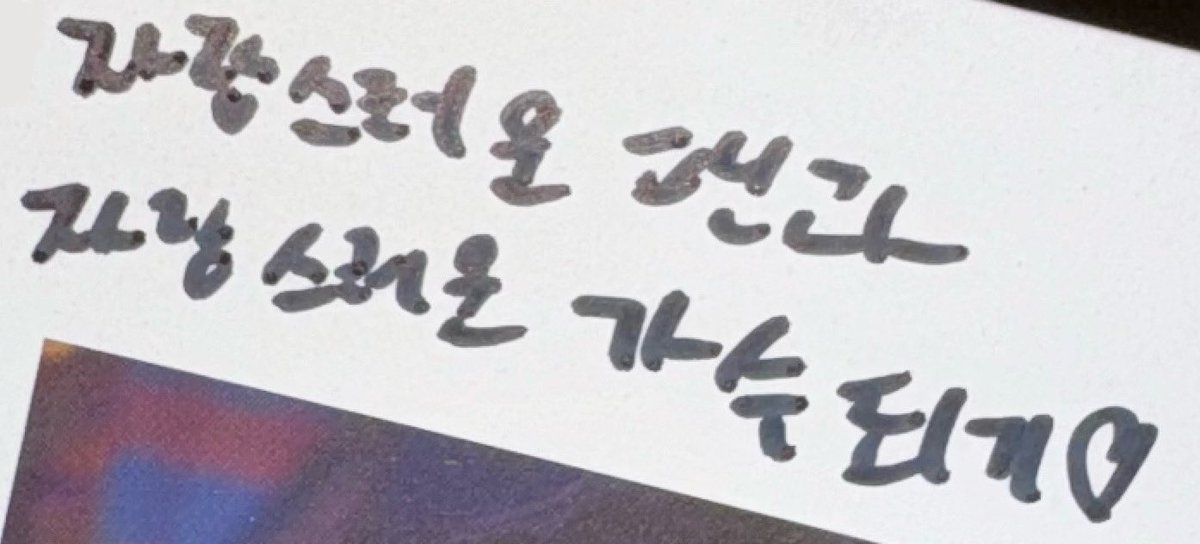 자랑스러운 팬과
자랑스러운 가수 되게♡